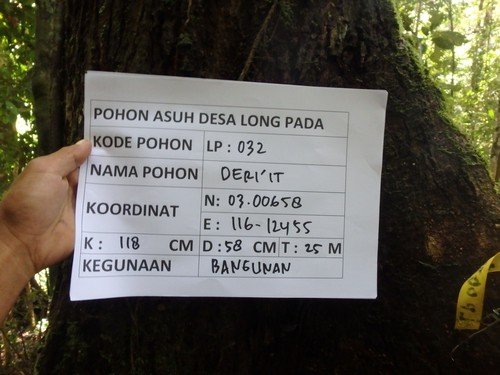 POHON ASUH DESA LONG PADA
KODE POHON LP : 032
NAMA POHON DERI'IT
KOORDINAT N: 03.00658
E : 116-12455
K : 118 CM D : 58 CM T : 25 M
KEGUNAAN BANGUNAN